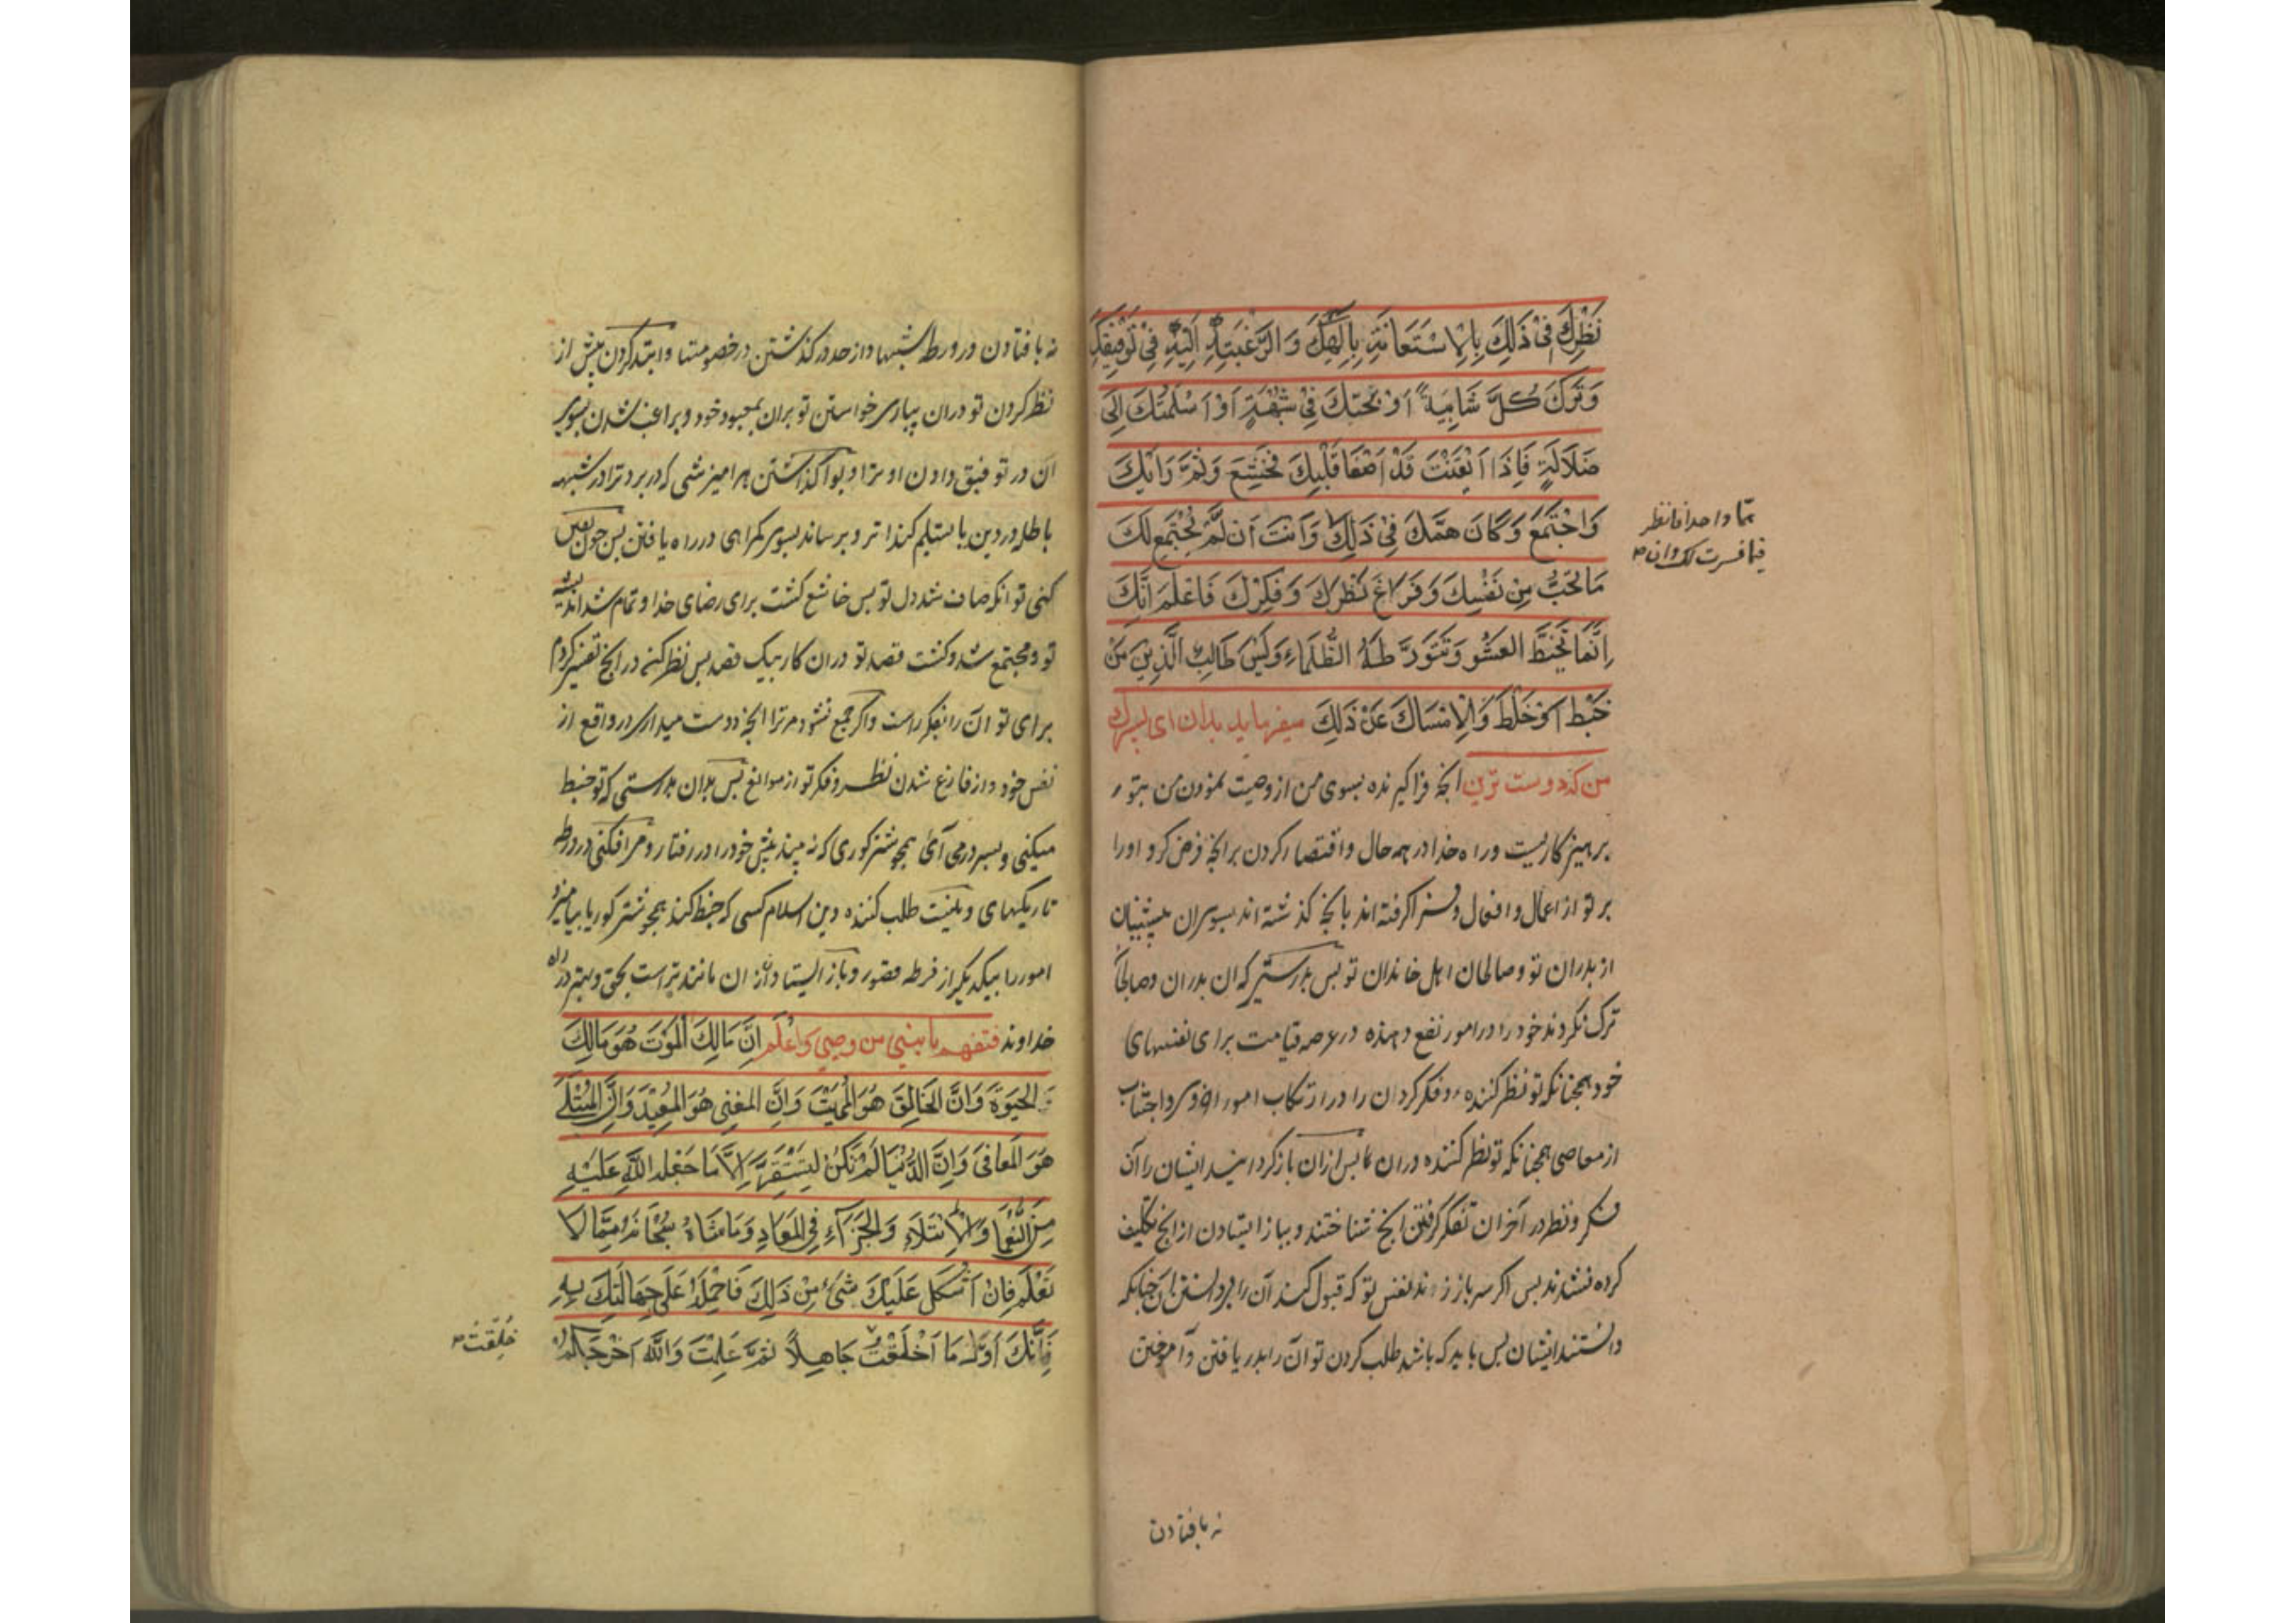 نَظَرِكَ فِیْ ذٰلِكَ بِالْاِسْتَعَانَةِ بِاِلٰهِكَ وَالرَّغْبَةِ اِلَیْهِ فِیْ تَوْفِیْقِكَ
وَتَرْكَ كُلَّ شَایِبَةٍ اَوْلَجَتْكَ فِیْ شُبْهَةٍ اَوْ اَسْلَمَتْكَ اِلَی
ضَلَالَةٍ فَاِذَا اَیْقَنْتَ قَدْ صَفَا قَلْبِكَ فَخَشَعَ وَتَمَّ رَایُكَ
وَاجْتَمَعَ وَكَانَ هَمُّكَ فِیْ ذٰلِكَ وَاَنْتَ اَنْ لَمْ یَجْتَمِعْ لَكَ
هَمّا واحدا فانظر
فیما فسرت لك وان
مَا تُحِبُّ مِنْ نَفْسِكَ وَفَرَاغَ نَظَرِكَ وَفِكْرِكَ فَاعْلَمْ اَنَّكَ
اِنَّمَا تَخْبِطُ العَشْو وَتَتَوَرَّطَهُ الظَّلْمَاءِ وَلَیْسَ طَالِبُ الَّذِیْنَ مَنْ
خَبَطَ اَوْ خَلَطَ وَالْاِمْسَاكَ عَنْ ذٰلِكَ میفرماید بدان ای پسرك
من كه دوست ترین انچه فراگیرنده بسوی من از وصیت نمودن من بتو
پرهیزكاریست و راه خدا در همه حال واقتصار كردن برانچه فرض كرد اورا
بر تو از اعمال و افعال و فرا گرفته اند بانچه گذشته اند بسوی ان پیشینیان
از پدران تو و صالحان اهل خاندان تو پس بدرستی كه ان پدران و صالحان
ترك نكردند خود را در امور نفع دهنده در عرصه قیامت برای نفسهای
خود همچنانكه تو نظر كننده و فكر كردان را در ارتكاب امور اخروی و اجتناب
از معاصی همچنانكه تو نظر كننده دران پس ازان باز گردانید ایشان را آن
فكر و نظر در آخر ان تفكر گرفتن انچه شناختند و بباز ایستادن از انچه تكلیف
كرده نشدند پس اگر سر باز زند نفس تو كه قبول كند آن را بی دانستن ان چنانكه
دانستند ایشان پس باید كه باشد طلب كردن تو آن را بدریافتن و آموختن
نه بافتادن
نه بافتادن در ورطه شبهها و از حد در گذشتن در خصومتها و ابتدا كردن پیش از
نظر كردن تو دران بیاری خواستن تو بران بمعبود خود و براغب شدن بسوی
ان در توفیق دادن او ترا و بواگذاشتن هر آمیزشی كه در برد ترا در شبهه
باطله در دین یا تسلیم كند تر و برساند بسوی گمراهی در راه یافتن پس چون یقین
كنی تو انكه صاف شد دل تو پس خاشع گشت برای رضای خدا و تمام شد اندیشه
تو و مجتمع شد و گشت قصد تو دران كار بیك قصد پس نظر كن در انچه تفسیر كردم
برای تو ان را بفكر راست و اگر جمع نشود مر ترا انچه دوست میداری در واقع از
نفس خود و از فارغ شدن نظر و فكر تو از موانع پس بدان بدرستی كه تو خبط
میكنی و بسر درمی آی همچو شتر كوری كه نه بیند پیش خود را در رفتار و می افكنی در ورطه
تاریكیهای و نیست طلب كننده دین اسلام كسی كه خبط كند همچو شتر كور یا بیامیزد
امور را بیكدیگر از فرطه قصور و باز ایستادن از ان مانند تر است بحق و بهتر در راه
خداوند فتفهم یا بنی من وصیی وَاعْلَم اَنَّ مَالِكَ الْمَوْتَ هُوَ مَالِكَ
الحَیٰوةَ وَاَنَّ الخَالِقَ هُوَ المُمِیْتَ وَاِنَّ المغنی هُوَ المُعِیْدَ وَاَنَّ المُبْتَلَی
هُوَ المَعَافِیَ وَاِنَّ الدُّنْیَا لَمْ تَكُنْ لِیَسْتَقِرَّ اِلَّا مَا جَعَلَهَ اللّٰهُ عَلَیْهِ
مِنَ النِّعَمَا وَالْاِبْتَلَاءِ وَالْجَزَآءِ فِی المَعَادِ وَمَا شَاءُ سُبْحَانَهُ مِمَّا لَا
تَعْلَم فَاِنْ اَشْكَلَ عَلَیْكَ شَیْءٌ مِنْ ذٰلِكَ فَاحْمِلْهُ عَلَی جِهَالَتِكَ بِهِ
فَاِنَّكَ اَوَّلَ مَا اَخْلَقْتَ جَاهِلاً ثُمَّ عَلِمْتَ وَاللّٰهُ اَخْرَجَكُمْ
خُلِقْتَ